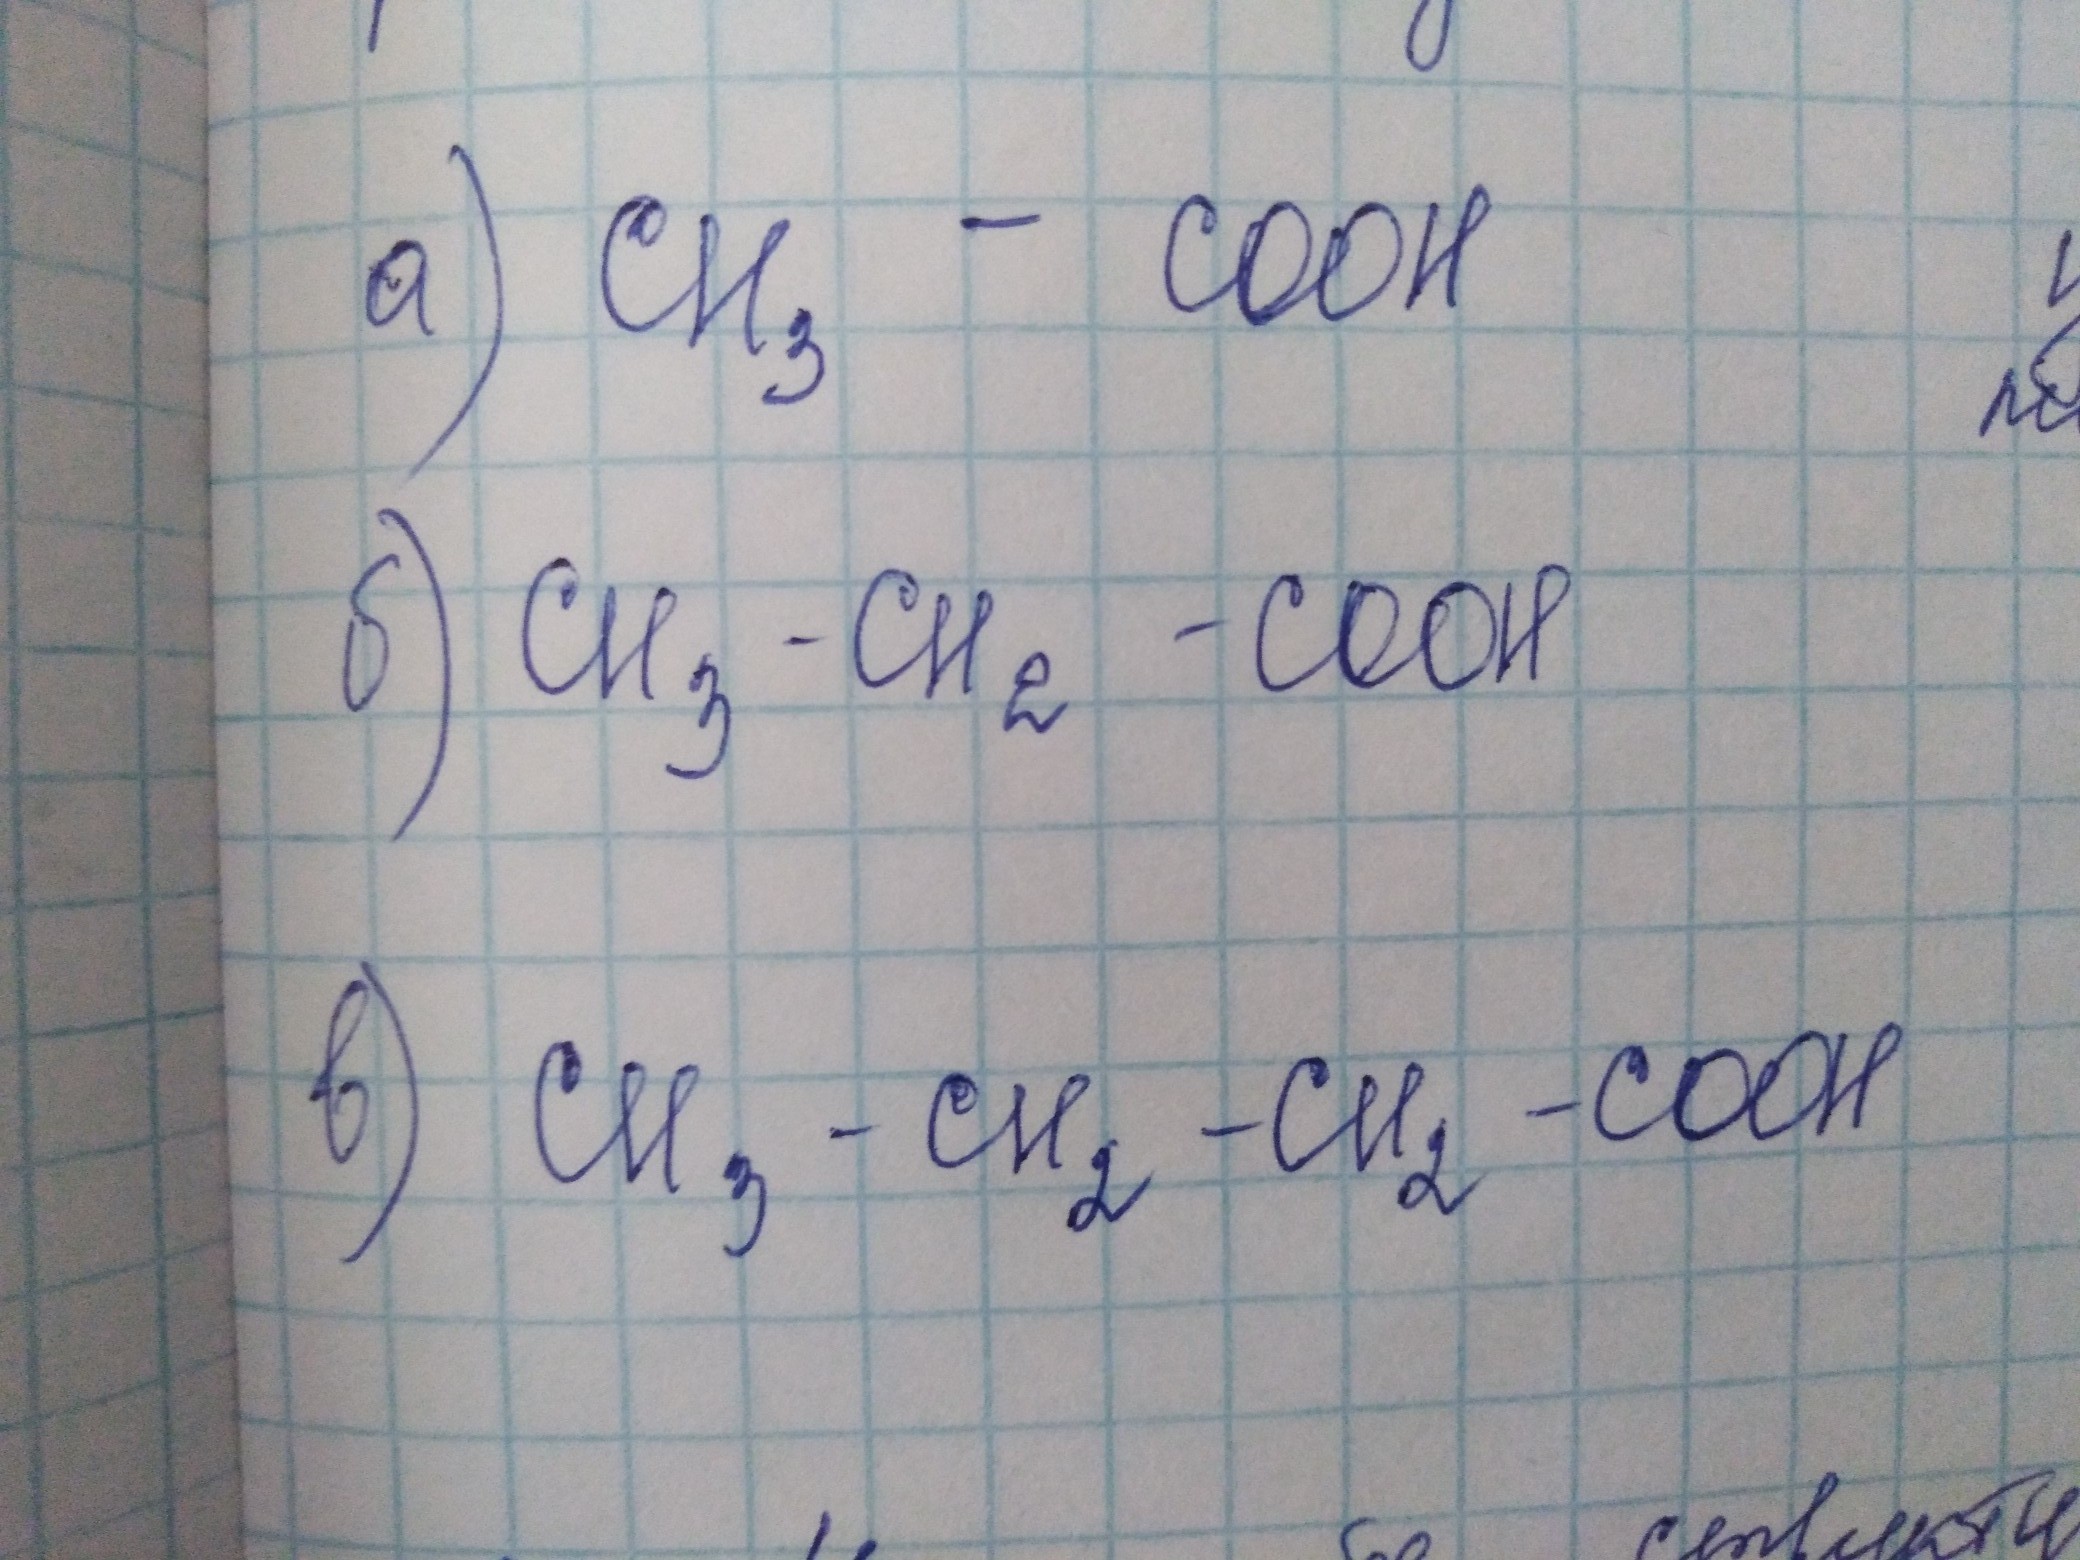 а) CH₃ - COOH
б) CH₃ - CH₂ - COOH
в) CH₃ - CH₂ - CH₂ - COOH